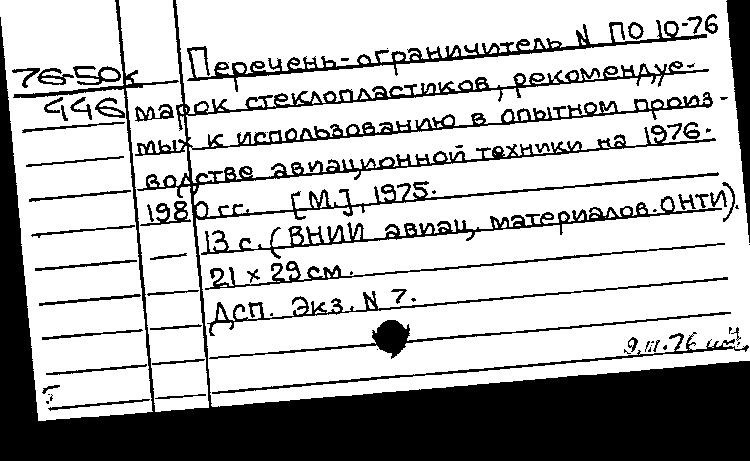 76-50к
446
Перечень-ограничитель N ПО 10-76
марок стеклопластиков, рекомендуе-
мых к использованию в опытном произ-
водстве авиационной техники на 1976-
1980 гг. [М.], 1975.
13 с. (ВНИИ авиац. материалов. ОНТИ).
21 × 29 см.
ДСП. Экз. N 7.
9.III.76